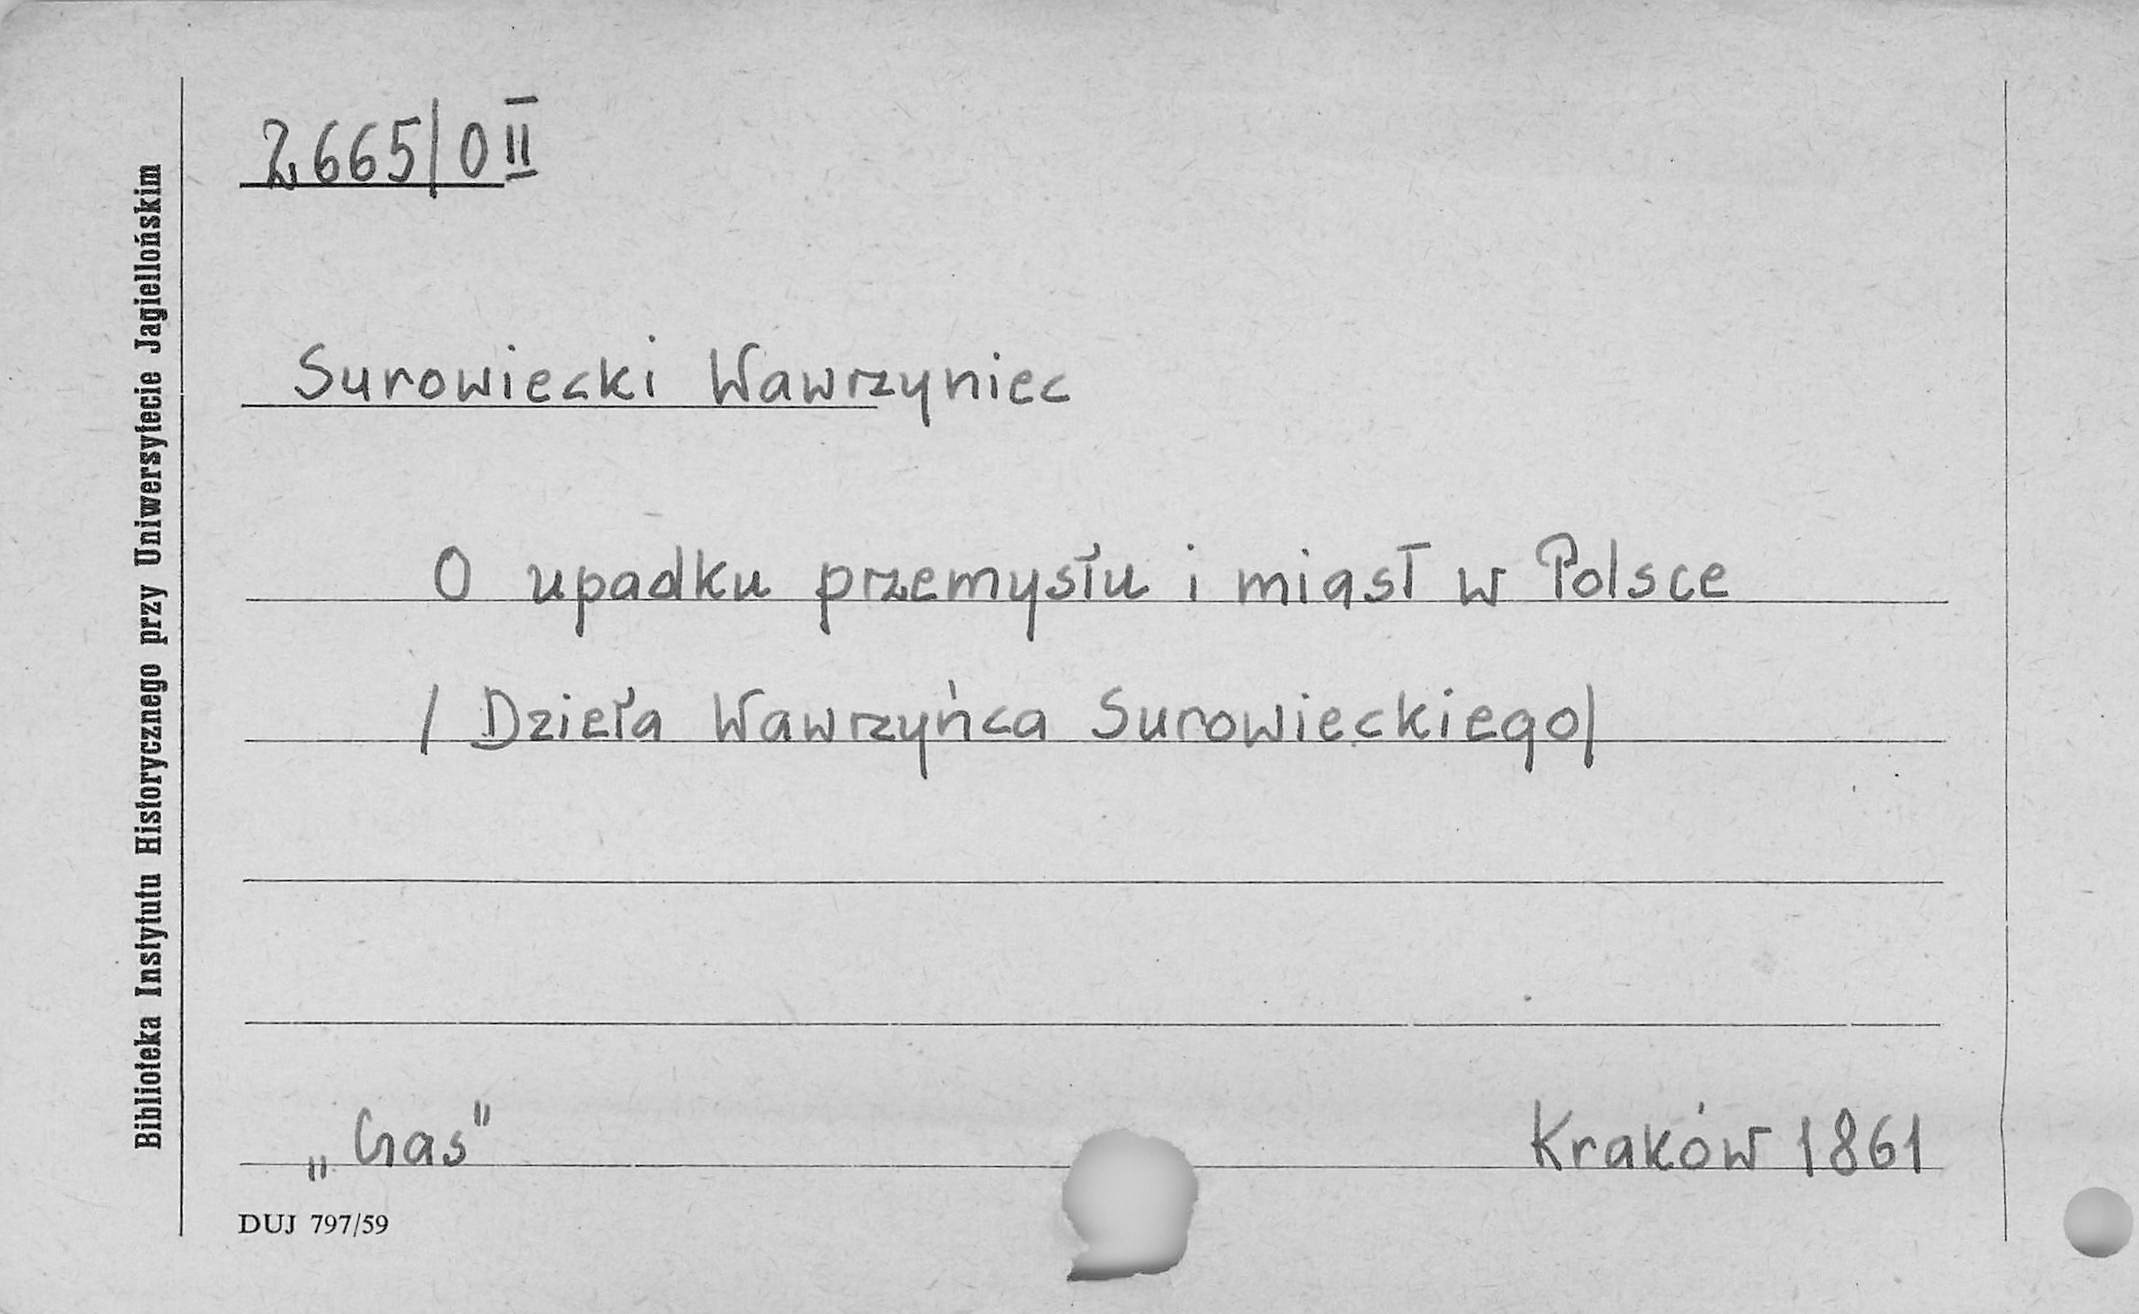 2665/0 II
Surowiecki Wawrzyniec
O upadku przemysłu i miast w Polsce
/ Dzieła Wawrzyńca Surowieckiego/
„Czas"
Kraków 1861
DUJ 797/59
Biblioteka Instytutu Historycznego przy Uniwersytecie Jagiellońskim